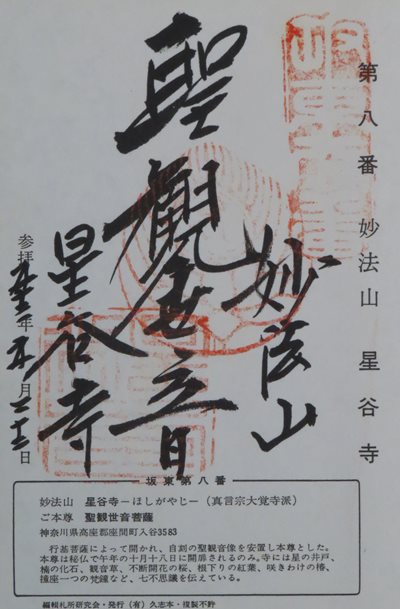 第八番 妙法山 星谷寺
妙法山
聖観世音
星谷寺
参拝 年 月 日
坂東第八番
妙法山 星谷寺－ほしがやじ－(真言宗大覚寺派)
ご本尊 聖観世音菩薩
神奈川県高座郡座間町入谷3583
行基菩薩によって開かれ、自刻の聖観音像を安置し本尊とした。
本尊は秘仏で午年の十月十八日に開扉されるのみ。寺には星の井戸、
楠の化石、観音草、不断開花の桜、根下りの紅葉、咲きわけの椿、
撞座一つの梵鐘など、七不思議を伝えている。
編輯札所研究会・発行(有)久志本・複製不許